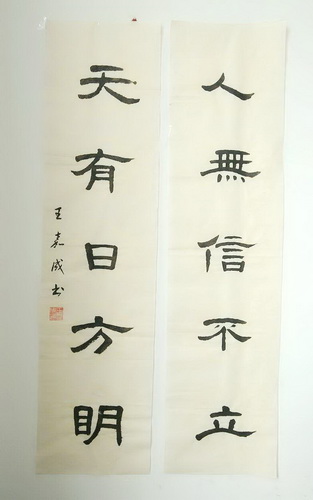 人無信不立
天有日方明
王嘉成书